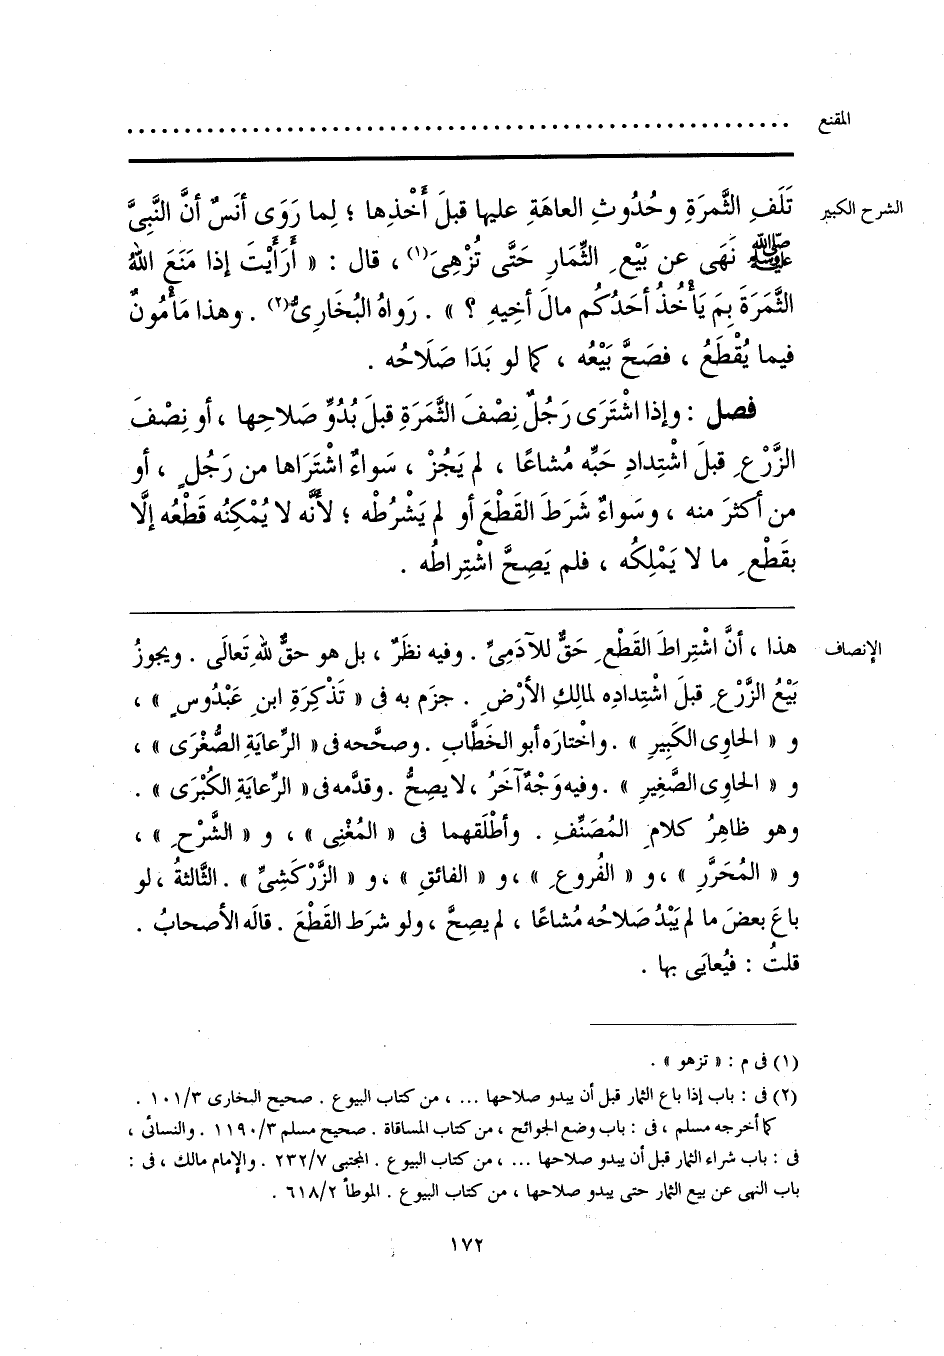 المقنع ..........................................................
الشرح الكبير تَلَفِ الثَّمرَةِ وحُدُوثِ العاهَةِ عليها قبلَ أَخْذِها ؛ لِما رَوَى أنَسٌ أنَّ النَّبِىَّ
ﷺ نَهَى عن بَيْعِ الثِّمَارِ حَتَّى تُزْهِىَ(١) ، قال : « أَرَأَيْتَ إذا مَنَعَ اللهُ
الثَّمَرَةَ بِمَ يَأْخُذُ أحَدُكُم مالَ أخِيهِ ؟ » . رَواهُ البُخَارِىُّ(٢) . وهذا مَأْمُونٌ
فيما يُقْطَعُ ، فصَحَّ بَيْعُه ، كما لو بَدَا صَلَاحُه .
فصل : وإذا اشْتَرَى رَجُلٌ نِصْفَ الثَّمَرَةِ قبلَ بُدُوِّ صَلاحِها ، أو نِصْفَ
الزَّرْعِ قبلَ اشْتِدادِ حَبِّه مُشاعًا ، لم يَجُزْ ، سَواءٌ اشْتَرَاها من رَجُلٍ ، أو
من أكثرَ منه ، وسَواءٌ شَرَطَ القَطْعَ أو لم يَشْرُطْه ؛ لأنَّه لا يُمْكِنُه قَطْعُه إلَّا
بقَطْعِ ما لا يَمْلِكُه ، فلم يَصِحَّ اشْتِراطُه .
الإنصاف هذا ، أنَّ اشْتِراطَ القَطْعِ حَقٌّ للآدَمِىِّ . وفيه نظَرٌ ، بل هو حقٌّ للهِ تَعالَى . ويجوزُ
بَيْعُ الزَّرْعِ قبلَ اشْتِدادِه لمالِكِ الأرْضِ . جزَم به فى « تَذْكِرَةِ ابنِ عَبْدُوسٍ » ،
و « الحاوِى الكَبِيرِ » . واخْتارَه أبو الخَطَّابِ . وصحَّحه فى « الرِّعايَةِ الصُّغْرَى » ،
و « الحاوِى الصَّغِيرِ » . وفيه وَجْهٌ آخَرُ ، لا يصِحُّ . وقدَّمه فى « الرِّعايَةِ الكُبْرَى » .
وهو ظاهِرُ كلامِ المُصَنِّفِ . وأطْلَقهما فى « المُغْنِى » ، و « الشَّرْحِ » ،
و « المُحَرَّرِ » ، و « الفُروعِ » ، و « الفائقِ » ، و « الزَّرْكَشِىِّ » . الثَّالثةُ ، لو
باعَ بعضَ ما لم يَبْدُ صَلاحُه مُشاعًا ، لم يصِحَّ ، ولو شرَط القَطْعَ . قالَه الأصحابُ .
قلتُ : فيُعايَى بها .
(١) فى م : « تزهو » .
(٢) فى : باب إذا باع الثمار قبل أن يبدو صلاحها ... ، من كتاب البيوع . صحيح البخارى ٣/١٠١ .
كما أخرجه مسلم ، فى : باب وضع الجوائح ، من كتاب المساقاة . صحيح مسلم ٣/١١٩٠ . والنسائى ،
فى : باب شراء الثمار قبل أن يبدو صلاحها ... ، من كتاب البيوع . المجتبى ٧/٢٣٢ . والإمام مالك ، فى :
باب النهى عن بيع الثمار حتى يبدو صلاحها ، من كتاب البيوع . الموطأ ٢/٦١٨ .
١٧٢